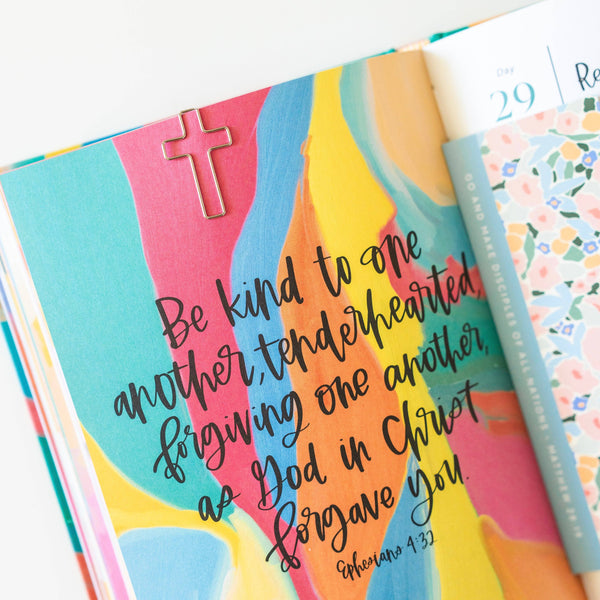 Be kind to one
another, tenderhearted,
forgiving one another,
as God in Christ
forgave you.
Ephesians 4:32
Day
29
GO AND MAKE DISCIPLES OF ALL NATIONS - MATTHEW 28:19